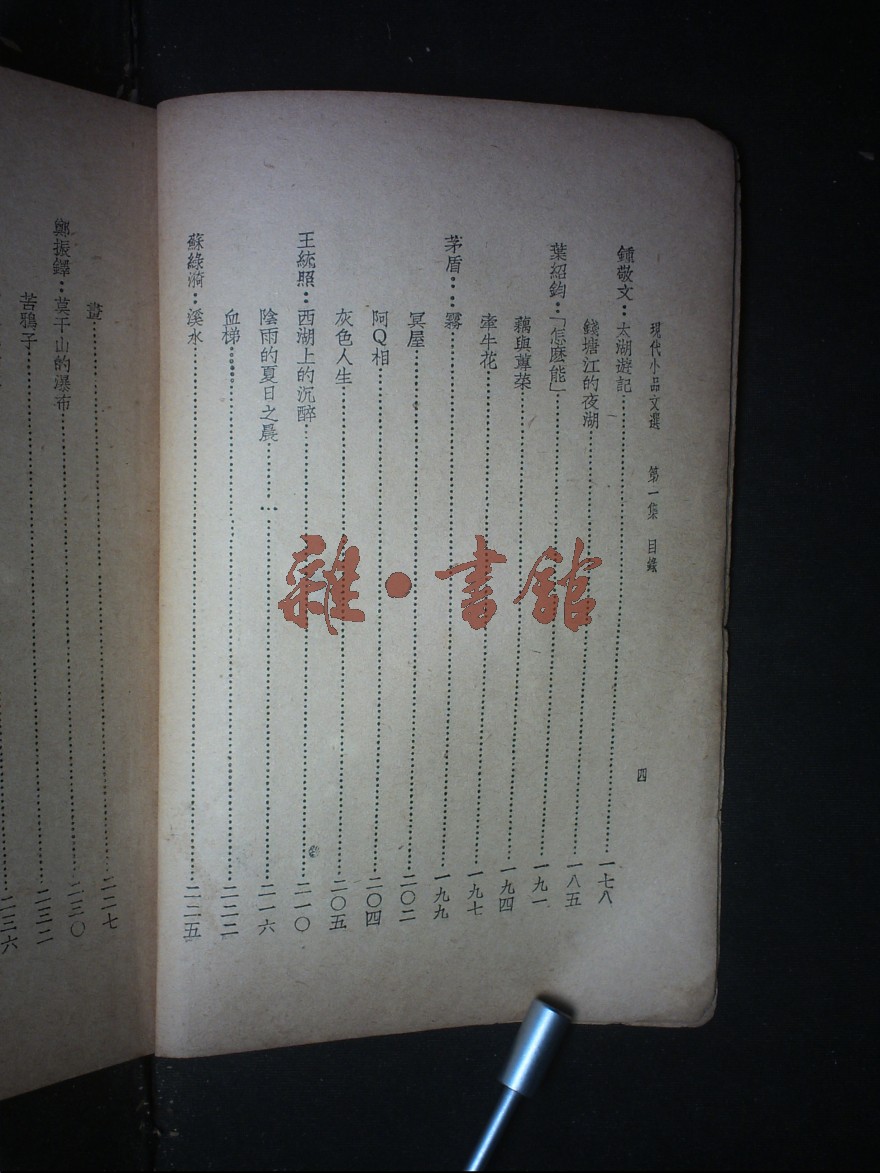 現代小品文選 第一集 目錄 四
鍾敬文：太湖遊記……一七八
錢塘江的夜湖……一八五
葉紹鈞：「怎麼能」……一九一
藕與蓴菜……一九四
牽牛花……一九七
茅盾：霧……一九九
冥屋……二〇二
阿Q相……二〇四
灰色人生……二〇五
王統照：西湖上的沉醉……二一〇
陰雨的夏日之晨……二一六
血梯……二二二
蘇綠漪：溪水……二二五
畫……二二七
鄭振鐸：莫干山的瀑布……二三〇
苦鴉子……二三二
二三六
雜·書館